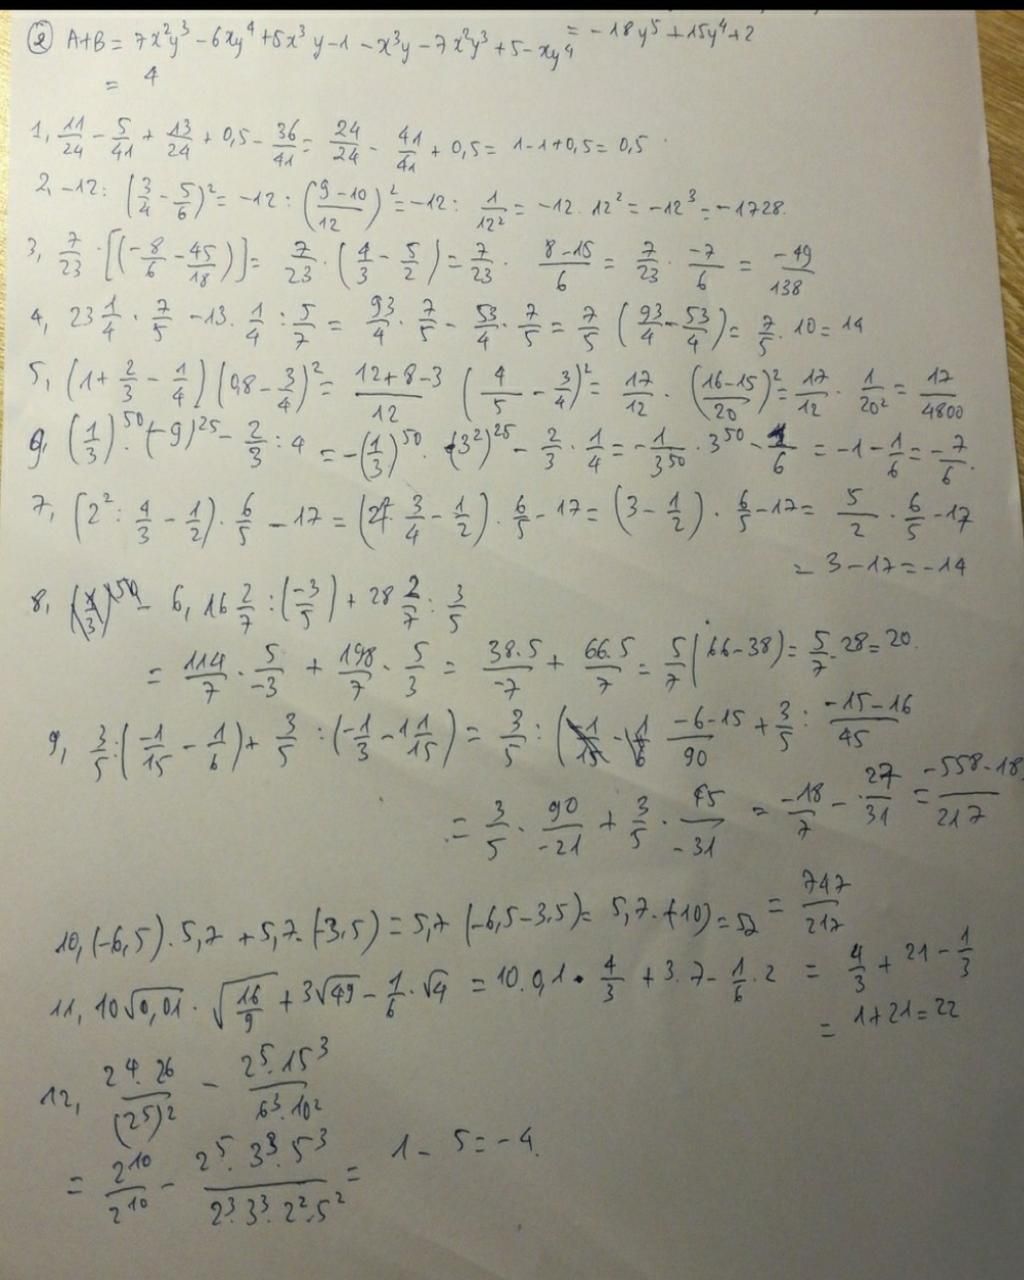 ② A+B = 7x²y³ - 6xy⁴ + 5x³y - 1 - x³y - 7x²y³ + 5 - xy⁴ = -18y⁵ + 15y⁴ + 2
= 4
1, 11/24 - 5/41 + 13/24 + 0,5 - 36/41 = 24/24 - 41/41 + 0,5 = 1 - 1 + 0,5 = 0,5
2, -12 : (3/4 - 5/6)² = -12 : ((9-10)/12)² = -12 : 1/12² = -12 . 12² = -12³ = -1728.
3, 7/23 . [(-8/6 - 45/18)] = 7/23 . (4/3 - 5/2) = 7/23 . (8-15)/6 = 7/23 . -7/6 = -49/138
4, 23 1/4 . 7/5 - 13. 1/4 : 5/7 = 93/4 . 7/5 - 53/4 . 7/5 = 7/5 (93/4 - 53/4) = 7/5 . 10 = 14
5, (1 + 2/3 - 1/4) (0,8 - 3/4)² = (12+8-3)/12 (4/5 - 3/4)² = 17/12 . ((16-15)/20)² = 17/12 . 1/20² = 17/4800
6, (1/3)⁵⁰ . (-9)²⁵ - 2/3 : 4 = -(1/3)⁵⁰ . (3²)²⁵ - 2/3 . 1/4 = -1/3⁵⁰ . 3⁵⁰ - 1/6 = -1 - 1/6 = -7/6.
7, (2² : 4/3 - 1/2) . 6/5 - 17 = (4 . 3/4 - 1/2) . 6/5 - 17 = (3 - 1/2) . 6/5 - 17 = 5/2 . 6/5 - 17
= 3 - 17 = -14
8, 16 2/7 : (-3/5) + 28 2/7 : 3/5
= 114/7 . 5/-3 + 198/7 . 5/3 = 38.5/-7 + 66.5/7 = 5/7 (66-38) = 5/7 . 28 = 20.
9, 3/5 : (-1/15 - 1/6) + 3/5 : (-1/3 - 1 1/15) = 3/5 : (-6-15)/90 + 3/5 : (-15-16)/45
= 3/5 . 90/-21 + 3/5 . 45/-31 = -18/7 - 27/31 = (-558-18)/217
= 747/217
10, (-6,5) . 5,7 + 5,7 . (-3,5) = 5,7 (-6,5-3,5) = 5,7 . (-10) = 52
11, 10√0,01 . √(16/9) + 3√49 - 1/6 . √4 = 10.0,1 . 4/3 + 3.7 - 1/6 . 2 = 4/3 + 21 - 1/3
= 1 + 21 = 22
12, 2⁴.26/(2⁵)² - 2⁵.15³/6³.10²
= 2¹⁰/2¹⁰ - 2⁵.3³.5³/2³.3³.2².5² = 1 - 5 = -4.